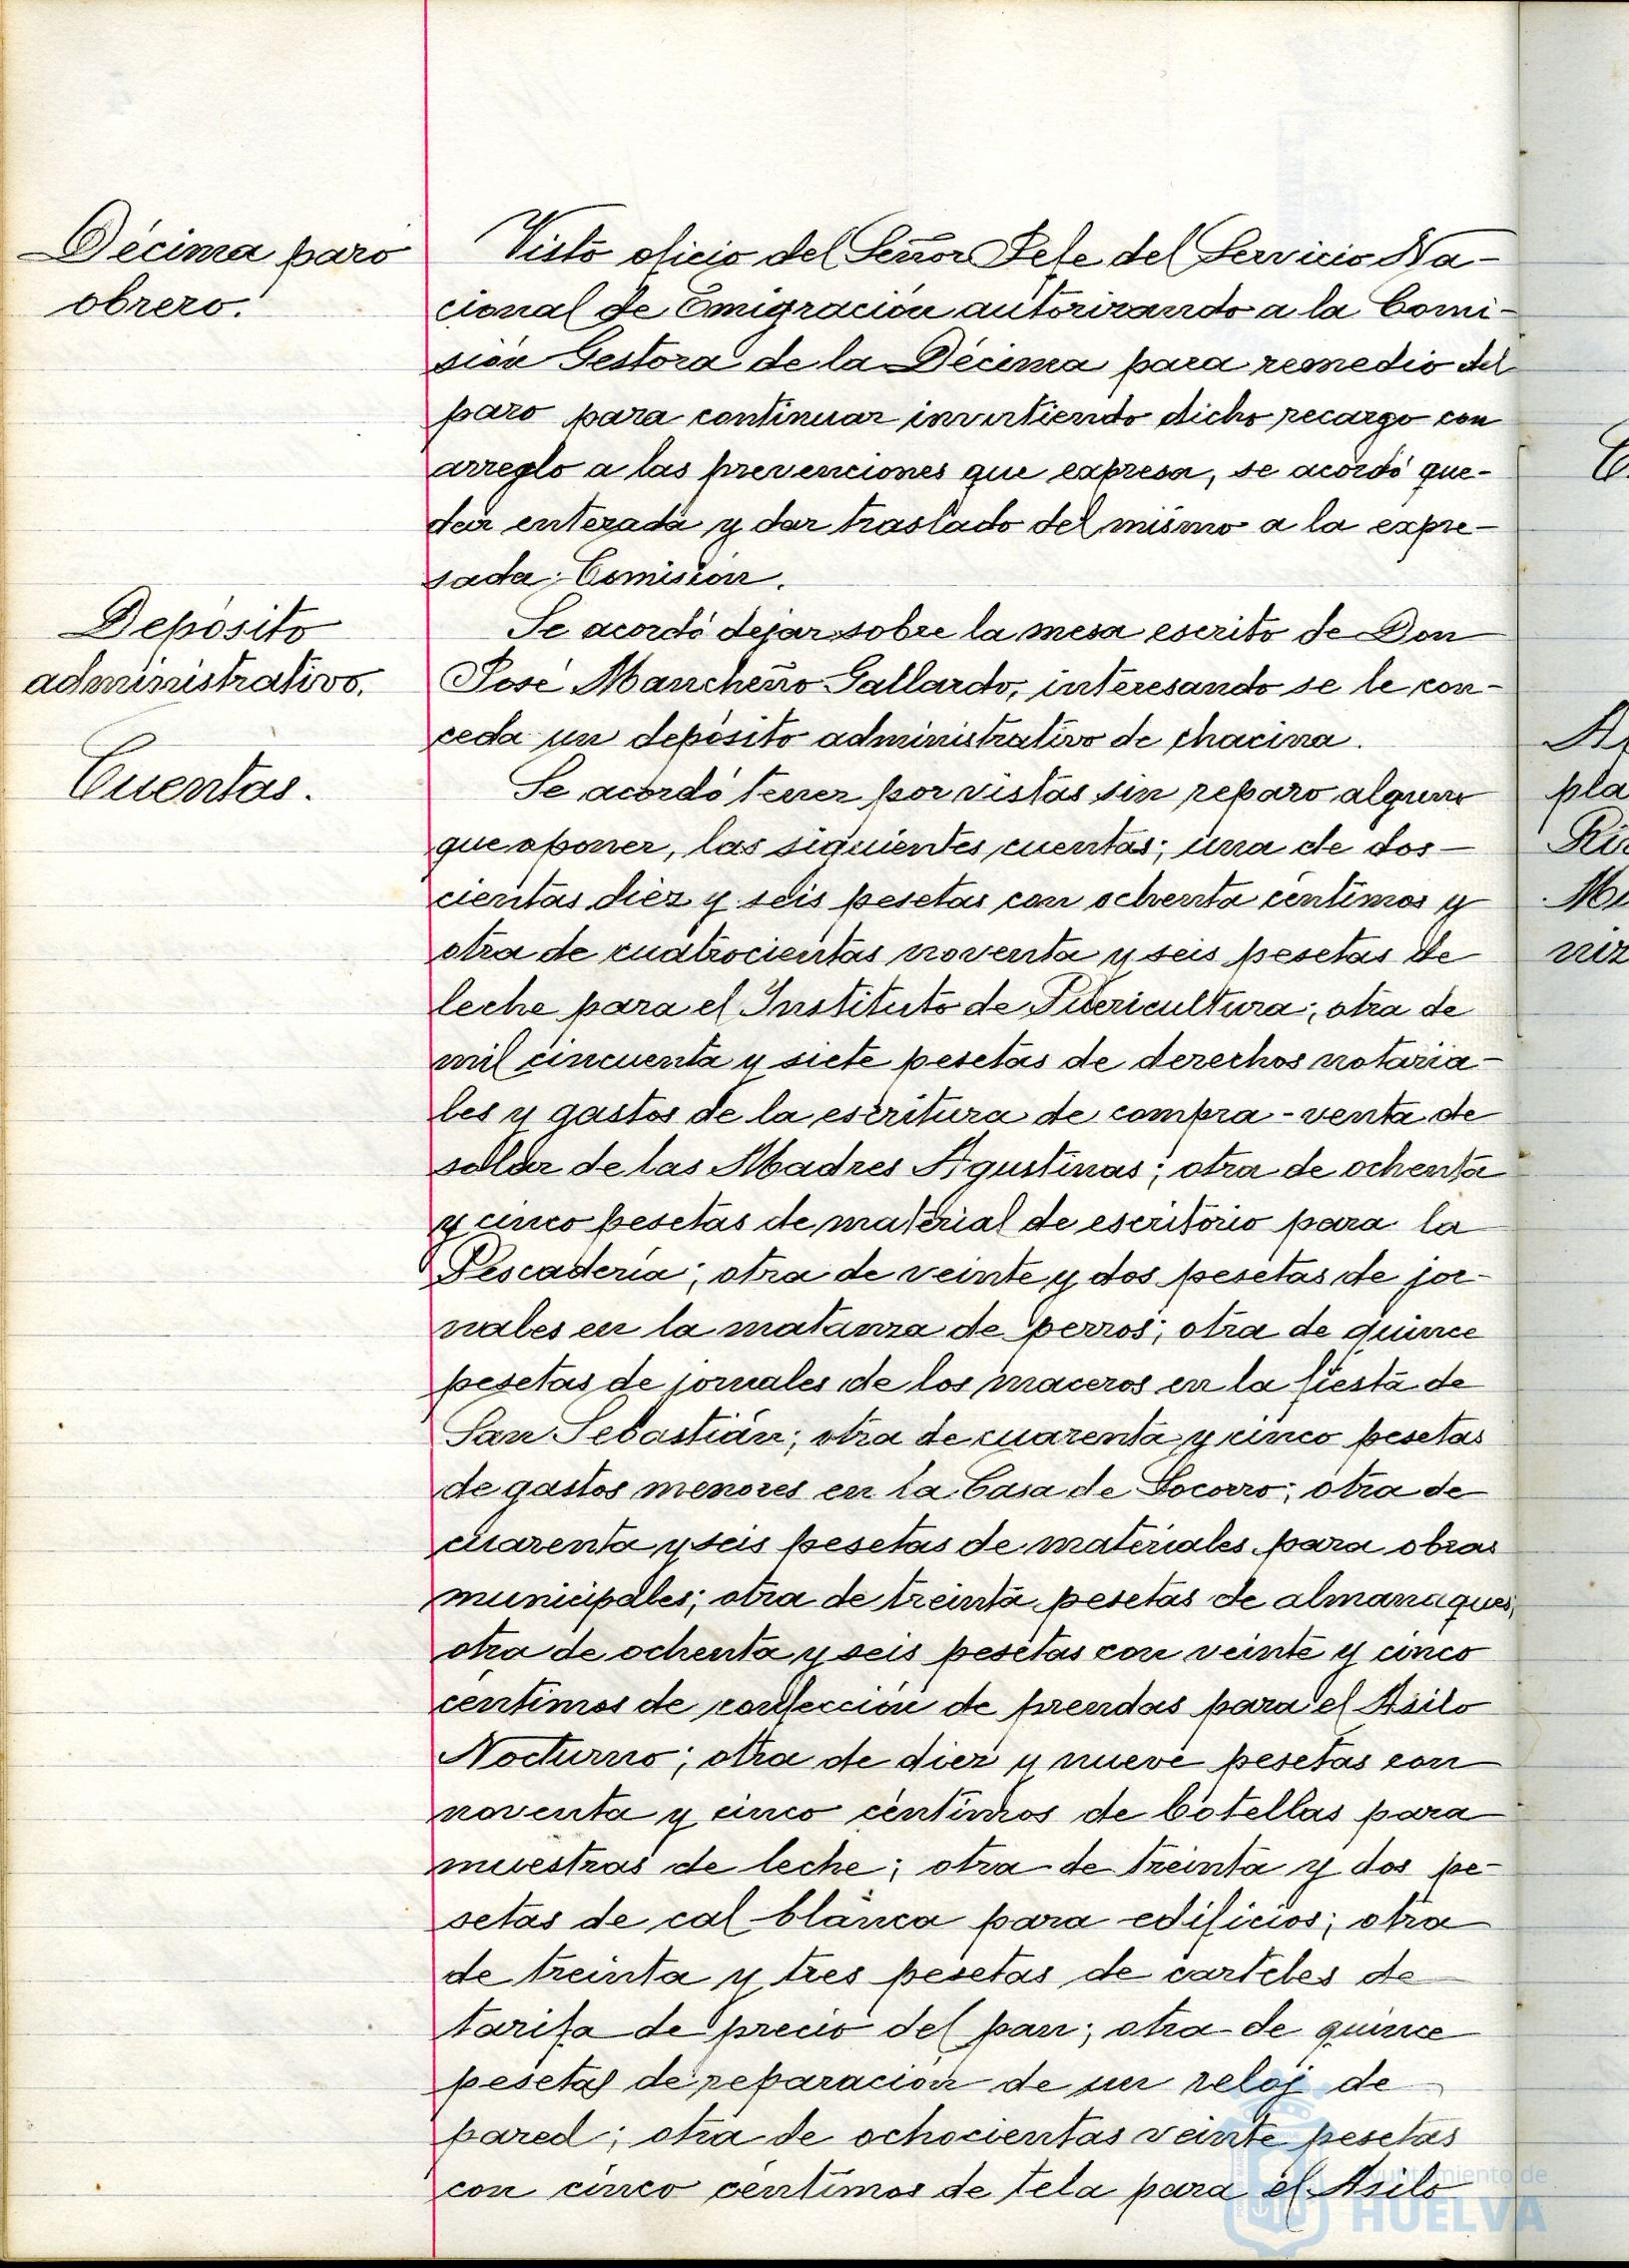 Décima paro
obrero.
Visto oficio del Señor Jefe del Servicio Na-
cional de Emigración autorizando a la Comi-
sión Gestora de la Décima para remedio del
paro para continuar invirtiendo dicho recargo con
arreglo a las prevenciones que expresa, se acordó que-
dar enterada y dar traslado del mismo a la expre-
sada Comisión.
Depósito
administrativo.
Se acordó dejar sobre la mesa escrito de Don
José Mancheño Gallardo, interesando se le con-
ceda un depósito administrativo de chacina.
Cuentas.
Se acordó tener por vistas sin reparo alguno
que oponer, las siguientes cuentas; una de dos-
cientas diez y seis pesetas con ochenta céntimos y
otra de cuatrocientas noventa y seis pesetas de
leche para el Instituto de Puericultura; otra de
mil cincuenta y siete pesetas de derechos notaria-
les y gastos de la escritura de compra-venta de
solar de las Madres Agustinas; otra de ochenta
y cinco pesetas de material de escritorio para la
Pescadería; otra de veinte y dos pesetas de jor-
nales en la matanza de perros; otra de quince
pesetas de jornales de los maceros en la fiesta de
San Sebastián; otra de cuarenta y cinco pesetas
de gastos menores en la Casa de Socorro; otra de
cuarenta y seis pesetas de materiales para obras
municipales; otra de treinta pesetas de almanaques;
otra de ochenta y seis pesetas con veinte y cinco
céntimos de confección de prendas para el Asilo
Nocturno; otra de diez y nueve pesetas con
noventa y cinco céntimos de botellas para
muestras de leche; otra de treinta y dos pe-
setas de cal blanca para edificios; otra
de treinta y tres pesetas de carteles de
tarifa de precio del pan; otra de quince
pesetas de reparación de un reloj de
pared; otra de ochocientas veinte pesetas
con cinco céntimos de tela para el Asilo
Ayuntamiento de
HUELVA